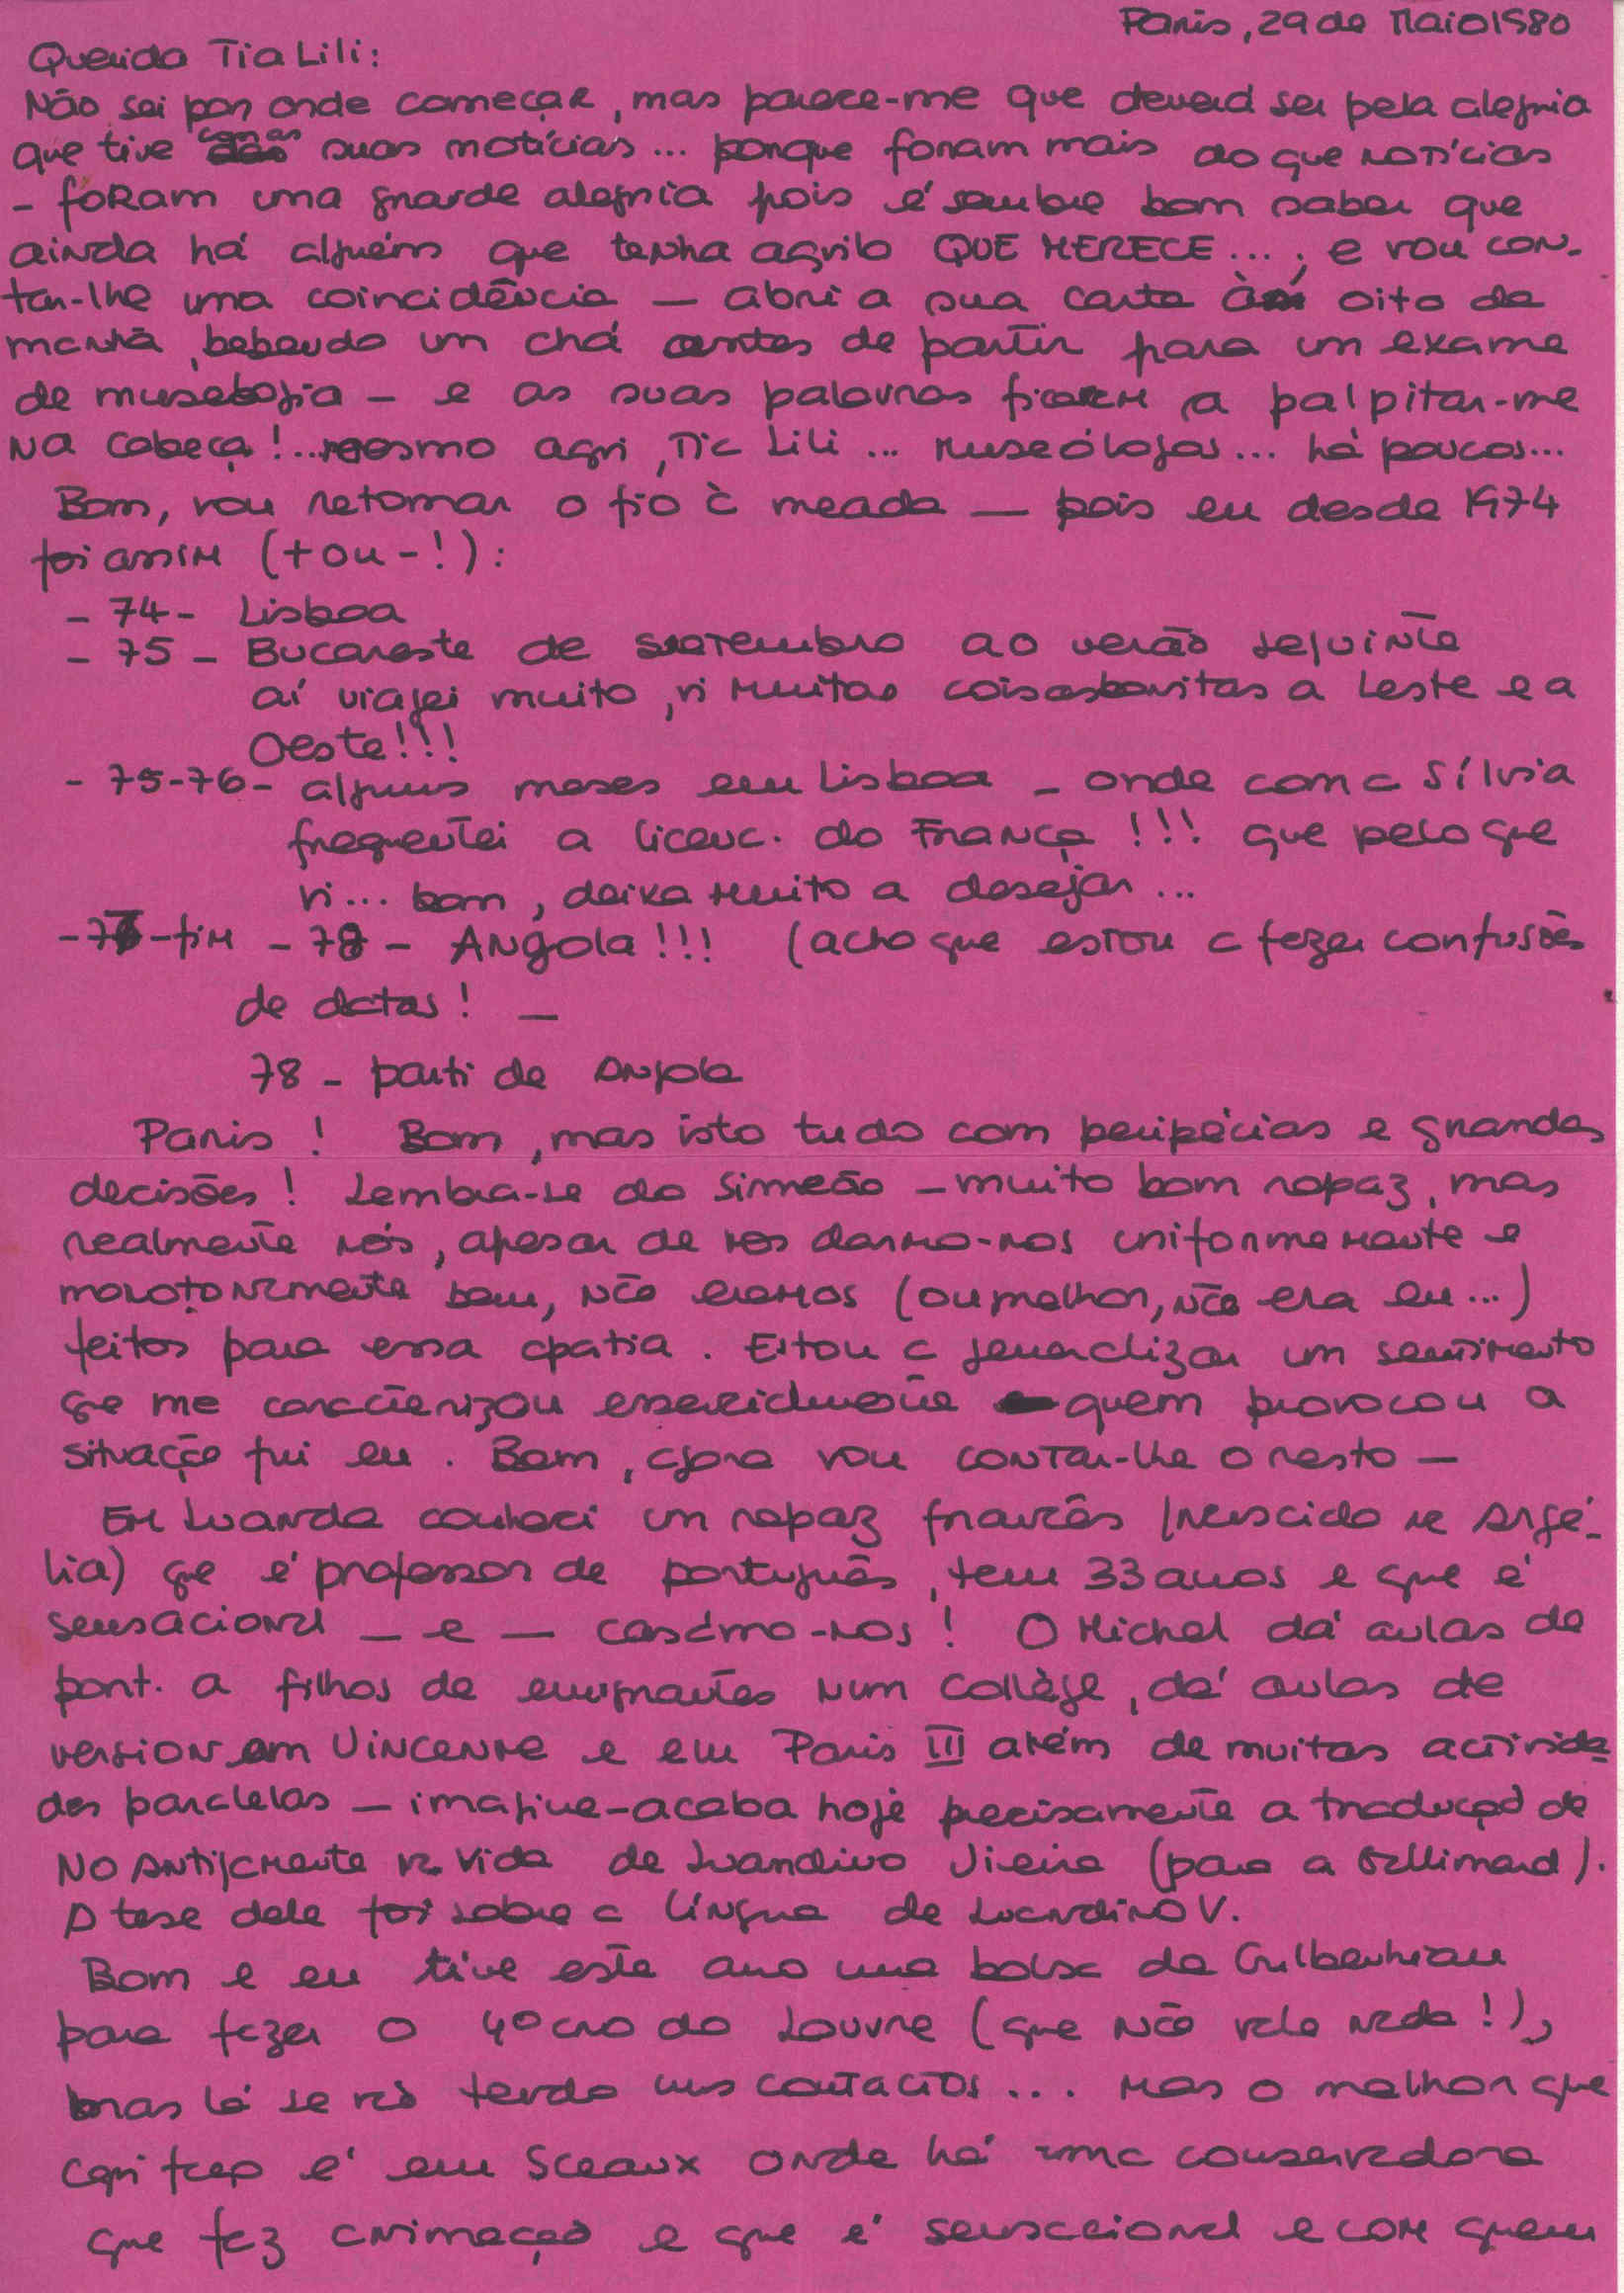 Paris, 29 de Maio 1980
Querida Tia Lili:
Não sei por onde começar, mas parece-me que deverá ser pela alegria
que tive com as suas notícias... porque foram mais do que notícias
- foram uma grande alegria pois é sempre bom saber que
ainda há alguém que tenha aquilo QUE MERECE...; e vou con-
tar-lhe uma coincidência — abri a sua carta às oito da
manhã, bebendo um chá antes de partir para um exame
de museologia - e as suas palavras ficaram a palpitar-me
na cabeça!... mesmo aqui, Tia Lili... museólogos... há poucos...
Bom, vou retomar o fio à meada — pois eu desde 1974
foi assim (+ ou -!):
- 74 - Lisboa
- 75 - Bucareste de setembro ao verão seguinte
aí viajei muito, vi muitas coisas bonitas a Leste e a
Oeste!!!
- 75-76 - alguns meses em Lisboa - onde com a Sílvia
frequentei a licenc. do França!!! que pelo que
vi... bom, deixa muito a desejar...
- 76 - fim - 78 - Angola!!! (acho que estou a fazer confusões
de datas! —
78 - parti de Angola
Paris! Bom, mas isto tudo com peripécias e grandes
decisões! Lembra-se do Simeão - muito bom rapaz, mas
realmente nós, apesar de nos darmo-nos uniformemente e
monotonamente bem, não eramos (ou melhor, não era eu...)
feitos para essa apatia. Estou a generalizar um sentimento
que me caracterizou essencialmente quem provocou a
situação fui eu. Bom, agora vou contar-lhe o resto —
Em Luanda conheci um rapaz francês (nascido na Argé-
lia) que é professor de português, tem 33 anos e que é
sensacional — e — casámo-nos! O Michel dá aulas de
port. a filhos de emigrantes num Collège, dá aulas de
version em Vincenne e em Paris III além de muitas activida-
des paralelas - imagine-acaba hoje precisamente a tradução de
No Antigamente na Vida de Luandino Vieira (para a Gallimard).
A tese dele foi sobre a língua de Luandino V.
Bom e eu tive este ano uma bolsa da Gulbenkian
para fazer o 4º ano do Louvre (que não vale nada!),
mas lá se vão tendo uns contactos... Mas o melhor que
aqui faço é em Sceaux onde há uma conservadora
que faz animação e que é sensacional e com quem